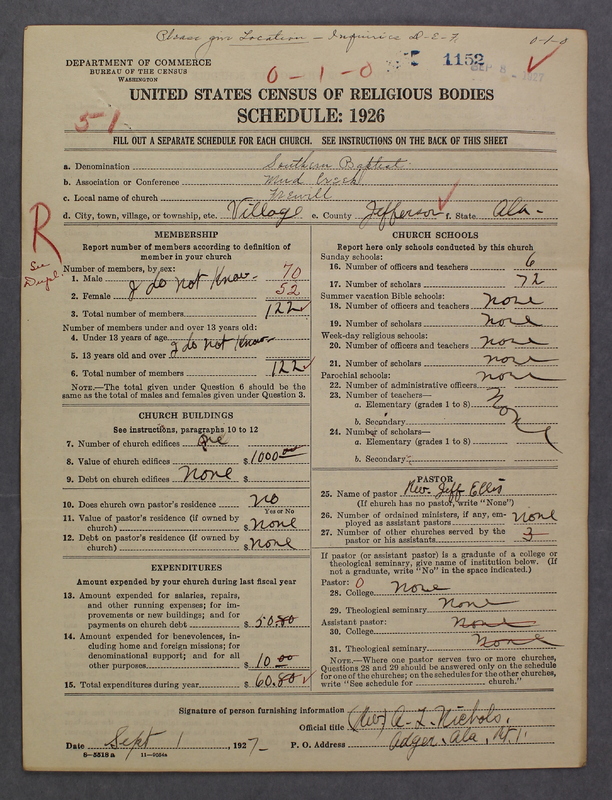 Please give Location - Inquiries D-E-F.
0-1-0
DEPARTMENT OF COMMERCE
BUREAU OF THE CENSUS
WASHINGTON
0-1-0
1152
SEP 8 1927
UNITED STATES CENSUS OF RELIGIOUS BODIES
51
SCHEDULE: 1926
FILL OUT A SEPARATE SCHEDULE FOR EACH CHURCH. SEE INSTRUCTIONS ON THE BACK OF THIS SHEET
a. Denomination Southern Baptist
b. Association or Conference Mud Creek
c. Local name of church Frewill
d. City, town, village, or township, etc. Village e. County Jefferson f. State Ala-
R
See
MEMBERSHIP
Report number of members according to definition of
member in your church
Number of members, by sex:
1. Male 70
I do not Know-
2. Female 52
3. Total number of members 122
Number of members under and over 13 years old:
4. Under 13 years of age
I do not Know-
5. 13 years old and over
6. Total number of members 122
NOTE.—The total given under Question 6 should be the
same as the total of males and females given under Question 3.
CHURCH BUILDINGS
See instructions, paragraphs 10 to 12
7. Number of church edifices One
8. Value of church edifices $ 1000 00
9. Debt on church edifices None $
10. Does church own pastor's residence No
Yes or No
11. Value of pastor's residence (if owned by
church) $ None
12. Debt on pastor's residence (if owned by
church) $ None
EXPENDITURES
Amount expended by your church during last fiscal year
13. Amount expended for salaries, repairs,
and other running expenses; for im-
provements or new buildings; and for
payments on church debt $ 50.80
14. Amount expended for benevolences, in-
cluding home and foreign missions; for
denominational support; and for all
other purposes $ 10 00
15. Total expenditures during year $ 60.80
CHURCH SCHOOLS
Report here only schools conducted by this church
Sunday schools:
16. Number of officers and teachers 6
17. Number of scholars 72
Summer vacation Bible schools:
18. Number of officers and teachers None
19. Number of scholars None
Week-day religious schools:
20. Number of officers and teachers None
21. Number of scholars None
Parochial schools:
22. Number of administrative officers None
23. Number of teachers—
a. Elementary (grades 1 to 8)
None
b. Secondary
24. Number of scholars—
a. Elementary (grades 1 to 8)
b. Secondary
PASTOR
25. Name of pastor Rev. Jeff Ellis
(If church has no pastor, write "None")
26. Number of ordained ministers, if any, em-
ployed as assistant pastors None
27. Number of other churches served by the
pastor or his assistants 3
If pastor (or assistant pastor) is a graduate of a college or
theological seminary, give name of institution below. (If
not a graduate, write "No" in the space indicated.)
Pastor: 0
28. College None
29. Theological seminary None
Assistant pastor:
30. College None
31. Theological seminary None
NOTE.—Where one pastor serves two or more churches,
Questions 28 and 29 should be answered only on the schedule
for one of the churches; on the schedules for the other churches,
write "See schedule for church."
Signature of person furnishing information (Rev) A. L. Nichols.
Official title
Date Sept 1, 1927- P. O. Address Adger, Ala, Rt. 1.
8-5518a 11-9054a